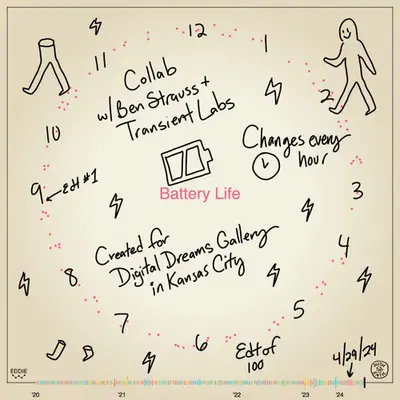 12
11
1
Collab
w/ Ben Strauss +
Transient Labs
2
10
Changes every
hour
Battery Life
9 ← Edt #1
3
Created for
Digital Dreams Gallery
in Kansas City
4
8
5
7
6
Edt of
100
4/29/24
EDDIE
'20
'21
'22
'23
'24